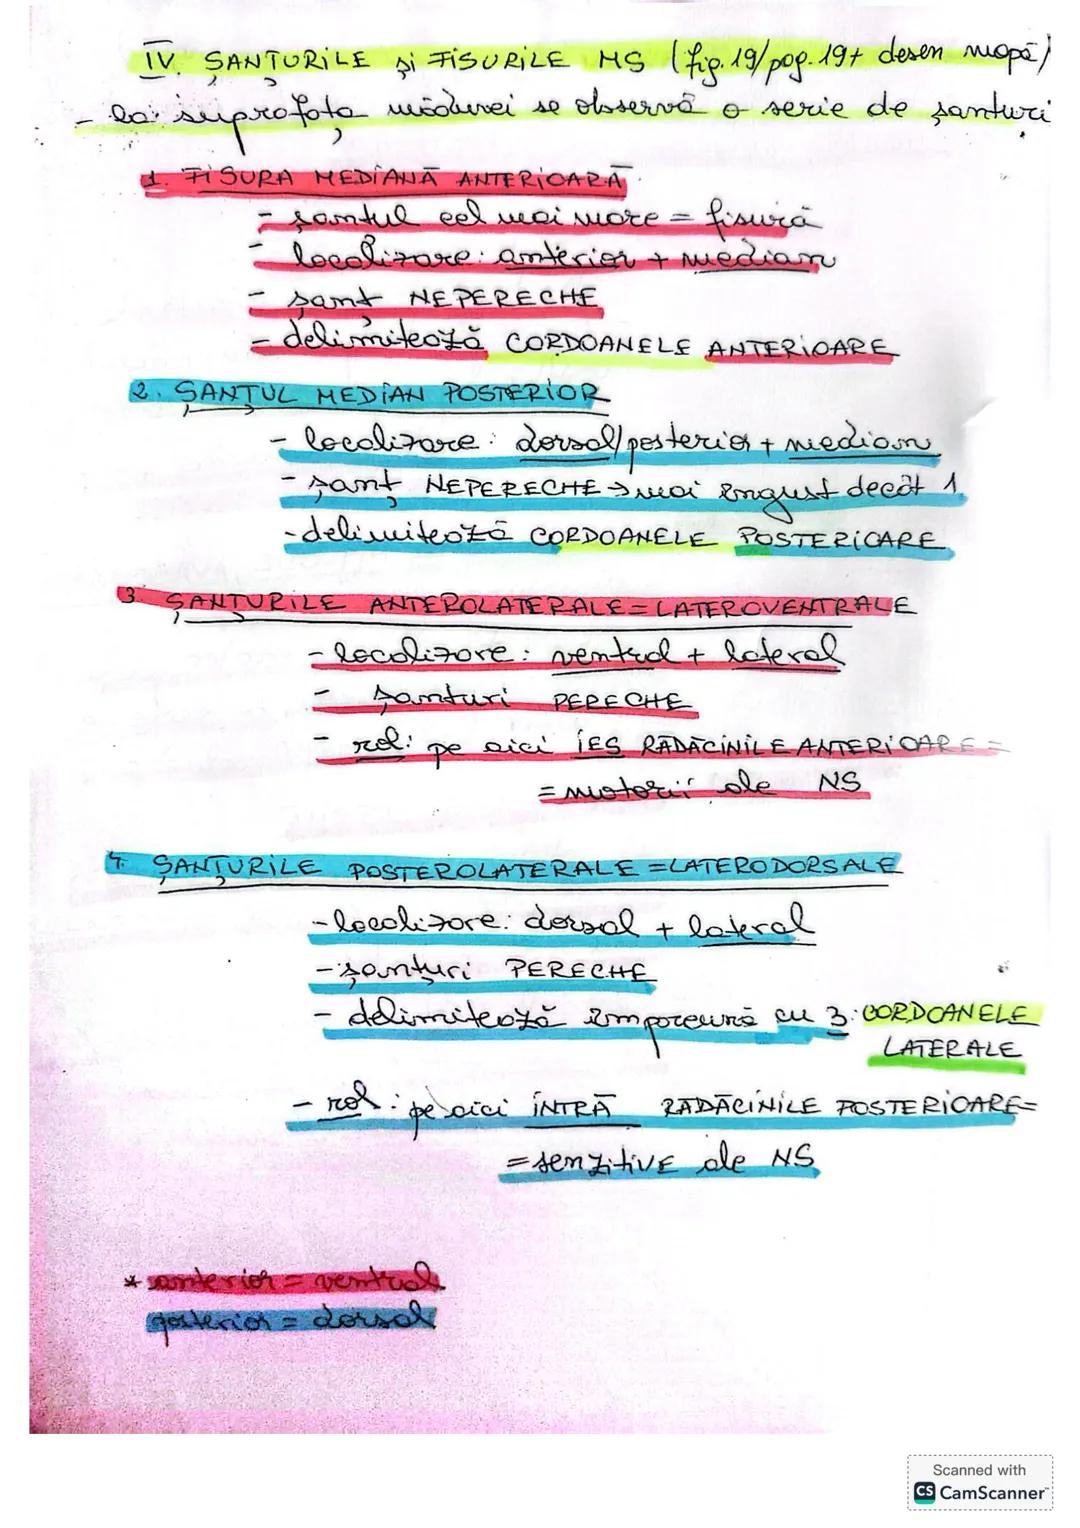 IV. ȘANȚURILE și FISURILE MS (fig. 19/pag. 19+ desen mapă)
- la suprafața măduvei se observă o serie de șanțuri
1. FISURA MEDIANĂ ANTERIOARĂ
- șanțul cel mai mare = fisură
- localizare: anterior + median
- șanț NEPERECHE
- delimitează CORDOANELE ANTERIOARE
2. ȘANȚUL MEDIAN POSTERIOR
- localizare: dorsal/posterior + median
- șanț NEPERECHE → mai îngust decât 1.
- delimitează CORDOANELE POSTERIOARE
3. ȘANȚURILE ANTEROLATERALE = LATEROVENTRALE
- localizare: ventral + lateral
- șanțuri PERECHE
- rol: pe aici IES RĂDĂCINILE ANTERIOARE =
= motorii ale NS
4. ȘANȚURILE POSTEROLATERALE = LATERODORSALE
- localizare: dorsal + lateral
- șanțuri PERECHE
- delimitează împreună cu 3. CORDOANELE
LATERALE
- rol: pe aici INTRĂ RĂDĂCINILE POSTERIOARE =
= senzitivE ale NS
* anterior = ventral
posterior = dorsal
Scanned with
CS CamScanner